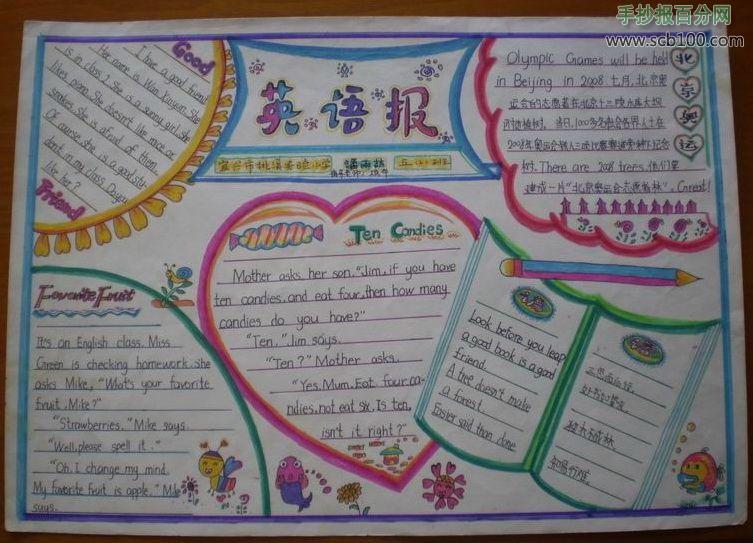 手抄报百分网
www.scb100.com
Good
Friend
I have a good friend
Her name is Wan Xinyun. She
is in class 2. She is a sunny girl. she
likes piano. She doesn't like mice or
snakes. she is afraid of them.
Of course, she is a good stu-
dent in my class. Do you
like her?
英语报
宜谷市桃溪实验小学
五(4)班
北京奥运
Olympic Games will be held
in Beijing in 2008. 七月,北京奥
运会的志愿者在北京十三陵水库大坝
植树. 当日,1000多名社会各界人士在
2008年奥运会铁人三项比赛赛道旁种下纪念
树. There are 2008 trees. 他们里
建成一片“北京奥运会志愿者林”. Great!
Ten Candies
Mother asks her son. "Jim, if you have
ten candies. and eat four, then how many
candies do you have?"
"Ten." Jim says.
"Ten?" Mother asks.
"Yes, Mum. Eat four ca-
ndies. not eat six. Is ten.
isn't it right?"
Favorite Fruit
It's an English class. Miss
Green is checking homework. She
asks Mike, "What's your favorite
fruit. Mike?"
"Strawberries." Mike says.
"Well, please spell it."
"Oh. I change my mind.
My favorite fruit is apple." Mike
says.
Look before you leap
a good book is a good
friend.
A tree doesn't make
a forest
Easier said than done
三思而后行.
好书如挚友.
独木不成林
知易行难.